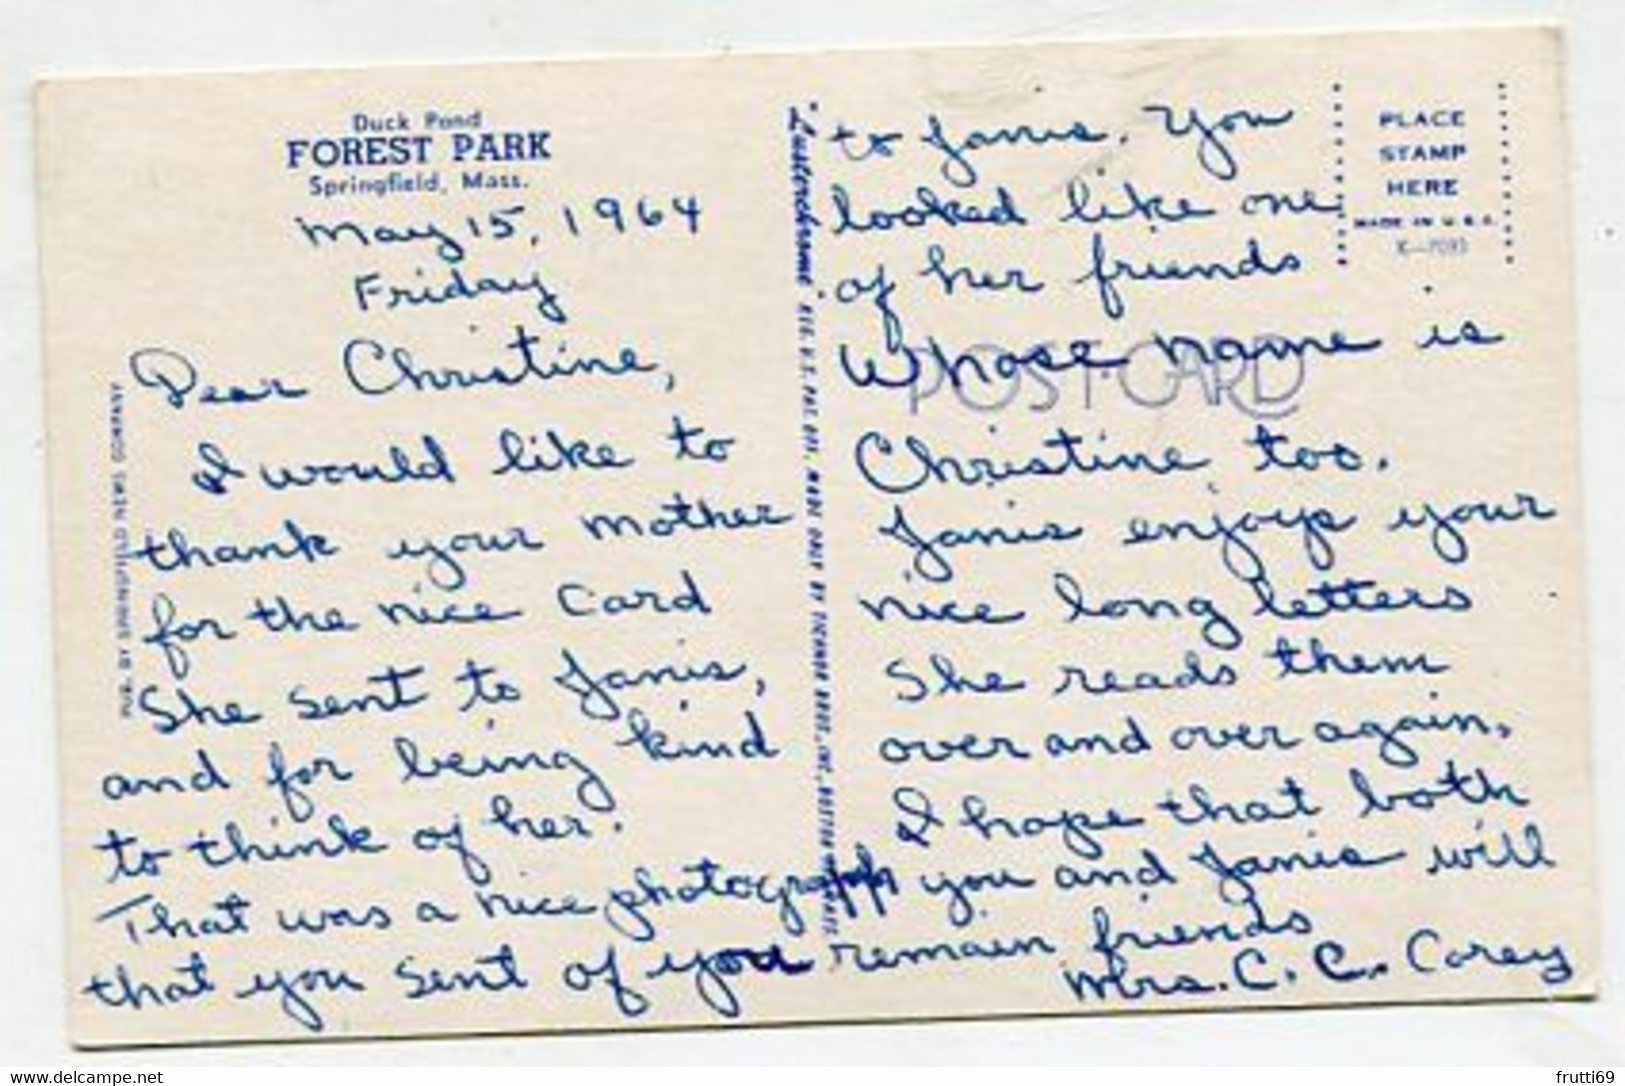 Duck Pond
FOREST PARK
Springfield, Mass.
May 15, 1964
Friday
Dear Christine,
I would like to
thank your mother
for the nice card
She sent to Janis,
and for being kind
to think of her.
That was a nice photograph
that you sent of you
to Janis. You
looked like one
of her friends
Whose name is
Christine too.
Janis enjoys your
nice long letters
She reads them
over and over again.
I hope that both
you and Janis will
remain friends
Mrs. C. C. Corey
PUB. BY SPRINGFIELD NEWS COMPANY
"Lusterchrome REG. U. S. PAT. OFF. MADE ONLY BY TICHNOR BROS., INC., BOSTON MASS.
PLACE
STAMP
HERE
MADE IN U.S.A.
POST CARD
delcampe.net
frutti69